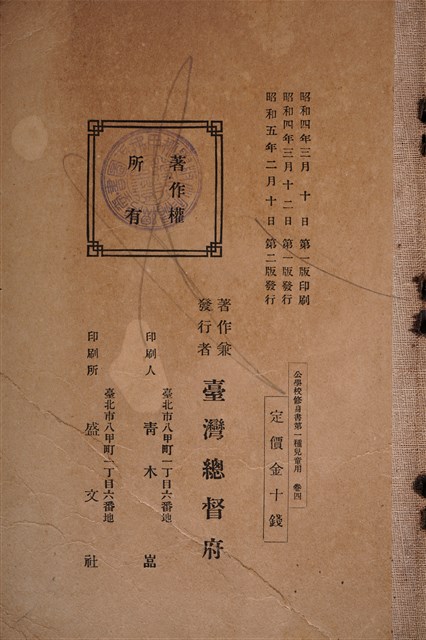 昭和四年三月十日第一版印刷
昭和四年三月十二日第一版發行
昭和五年二月十日第二版發行
著作權
所有
公學校修身書第一種兒童用 卷四
定價金十錢
著作兼
發行者
臺灣總督府
臺北市八甲町一丁目六番地
印刷人 靑木
臺北市八甲町一丁目六番地
印刷所 盛文社